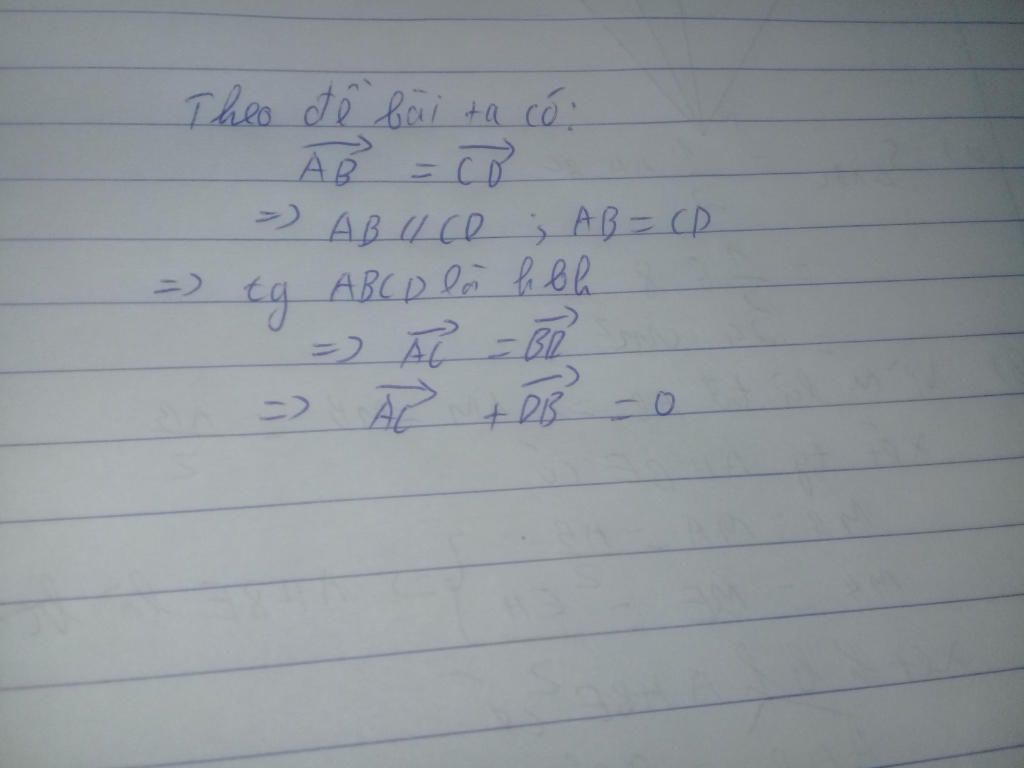 Theo đề bài ta có:
AB = CD
=> AB // CD ; AB = CD
=> tg ABCD là hbh
=> AC = BD
=> AC + DB = 0